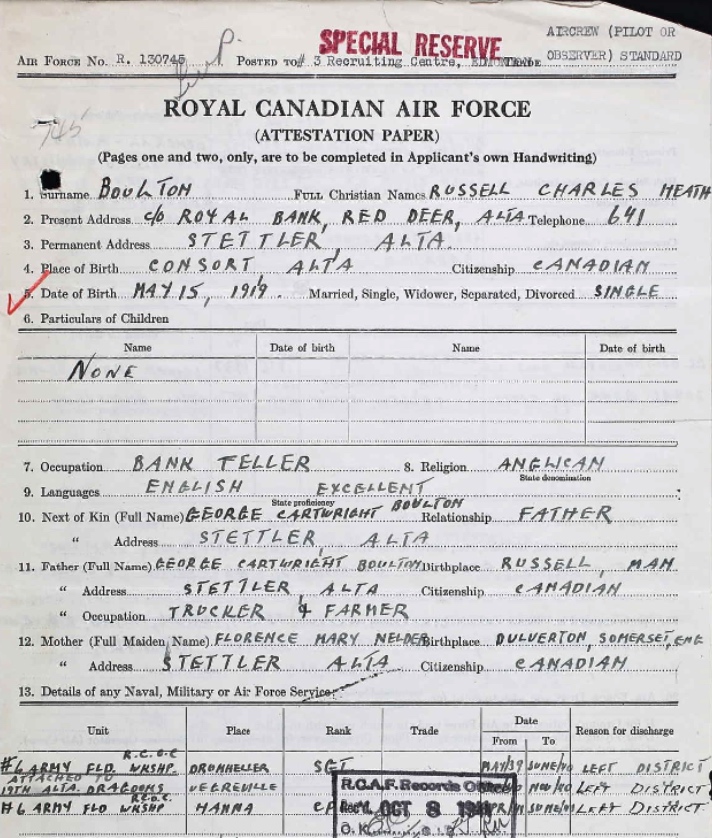 SPECIAL RESERVE
AIRCREW (PILOT OR
OBSERVER) STANDARD
AIR FORCE No. R. 130745 POSTED TO # 3 Recruiting Centre,
745
ROYAL CANADIAN AIR FORCE
(ATTESTATION PAPER)
(Pages one and two, only, are to be completed in Applicant's own Handwriting)
1. Surname BOULTON FULL Christian Names RUSSELL CHARLES HEATH
2. Present Address c/o ROYAL BANK, RED DEER, ALTA Telephone 641
3. Permanent Address STETTLER, ALTA.
4. Place of Birth CONSORT, ALTA Citizenship CANADIAN
5. Date of Birth MAY 15, 1919. Married, Single, Widower, Separated, Divorced SINGLE
6. Particulars of Children
Name Date of birth Name Date of birth
NONE
7. Occupation BANK TELLER 8. Religion ANGLICAN
State denomination
9. Languages ENGLISH EXCELLENT
State proficiency
10. Next of Kin (Full Name) GEORGE CARTWRIGHT BOULTON Relationship FATHER
" Address STETTLER, ALTA
11. Father (Full Name) GEORGE CARTWRIGHT BOULTON Birthplace RUSSELL, MAN
" Address STETTLER, ALTA Citizenship CANADIAN
" Occupation TRUCKER & FARMER
12. Mother (Full Maiden Name) FLORENCE MARY NELDER Birthplace DULVERTON, SOMERSET, ENG
" Address STETTLER ALTA Citizenship CANADIAN
13. Details of any Naval, Military or Air Force Service
Unit Place Rank Trade Date Reason for discharge
From To
R.C.O.C
#6 ARMY FLD. WKSHP. DRUMHELLER SGT MAY/39 JUNE/40 LEFT DISTRICT
ATTACHED TO
19TH ALTA. DRAGOONS VEGREVILLE NOV/40 LEFT DISTRICT
R.C.O.C.
#6 ARMY FLD WKSHP HANNA JUNE/41 LEFT DISTRICT
R.C.A.F. Records Office
Rec'd. OCT 8 1941
O. K.